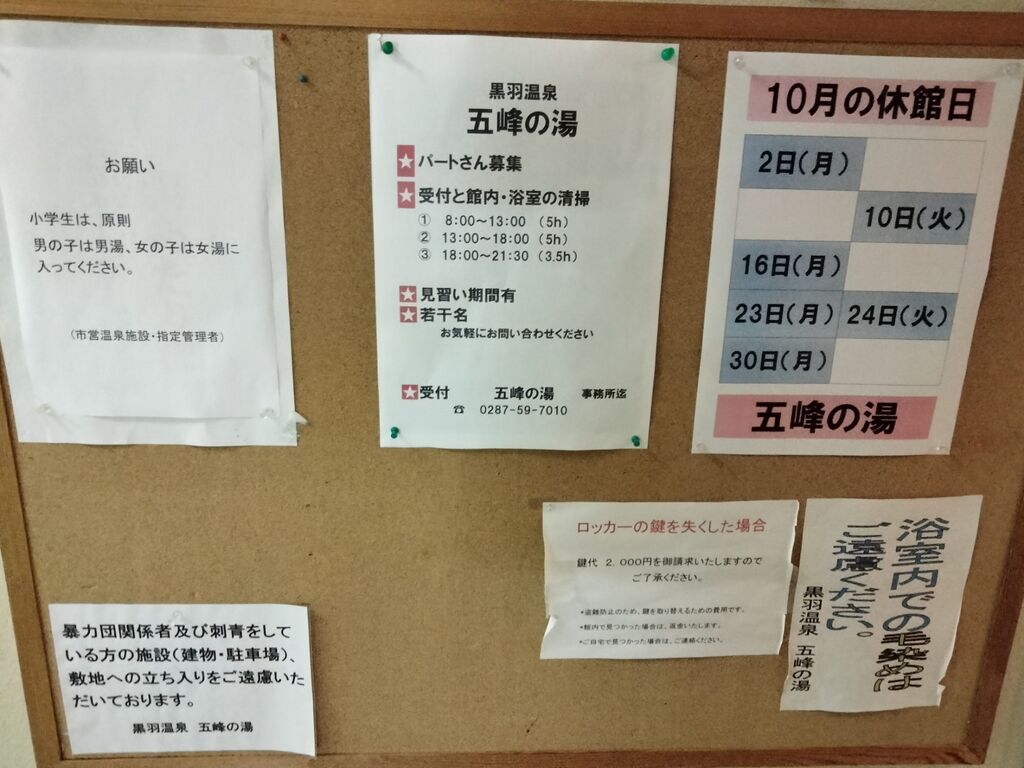 お願い
小学生は、原則
男の子は男湯、女の子は女湯に
入ってください。
(市営温泉施設・指定管理者)
黒羽温泉
五峰の湯
★パートさん募集
★受付と館内・浴室の清掃
① 8:00～13:00 (5h)
② 13:00～18:00 (5h)
③ 18:00～21:30 (3.5h)
★見習い期間有
★若干名
お気軽にお問い合わせください
★受付 五峰の湯 事務所迄
☎ 0287-59-7010
10月の休館日
2日(月)
10日(火)
16日(月)
23日(月) 24日(火)
30日(月)
五峰の湯
暴力団関係者及び刺青をして
いる方の施設(建物・駐車場)、
敷地への立ち入りをご遠慮いた
だいております。
黒羽温泉 五峰の湯
ロッカーの鍵を失くした場合
鍵代 2,000円を御請求いたしますので
ご了承ください。
*盗難防止のため、鍵を取り替えるための費用です。
*館内で見つかった場合は、返金いたします。
*ご自宅で見つかった場合は、ご連絡ください。
浴室内での毛染めは
ご遠慮ください。
黒羽温泉 五峰の湯